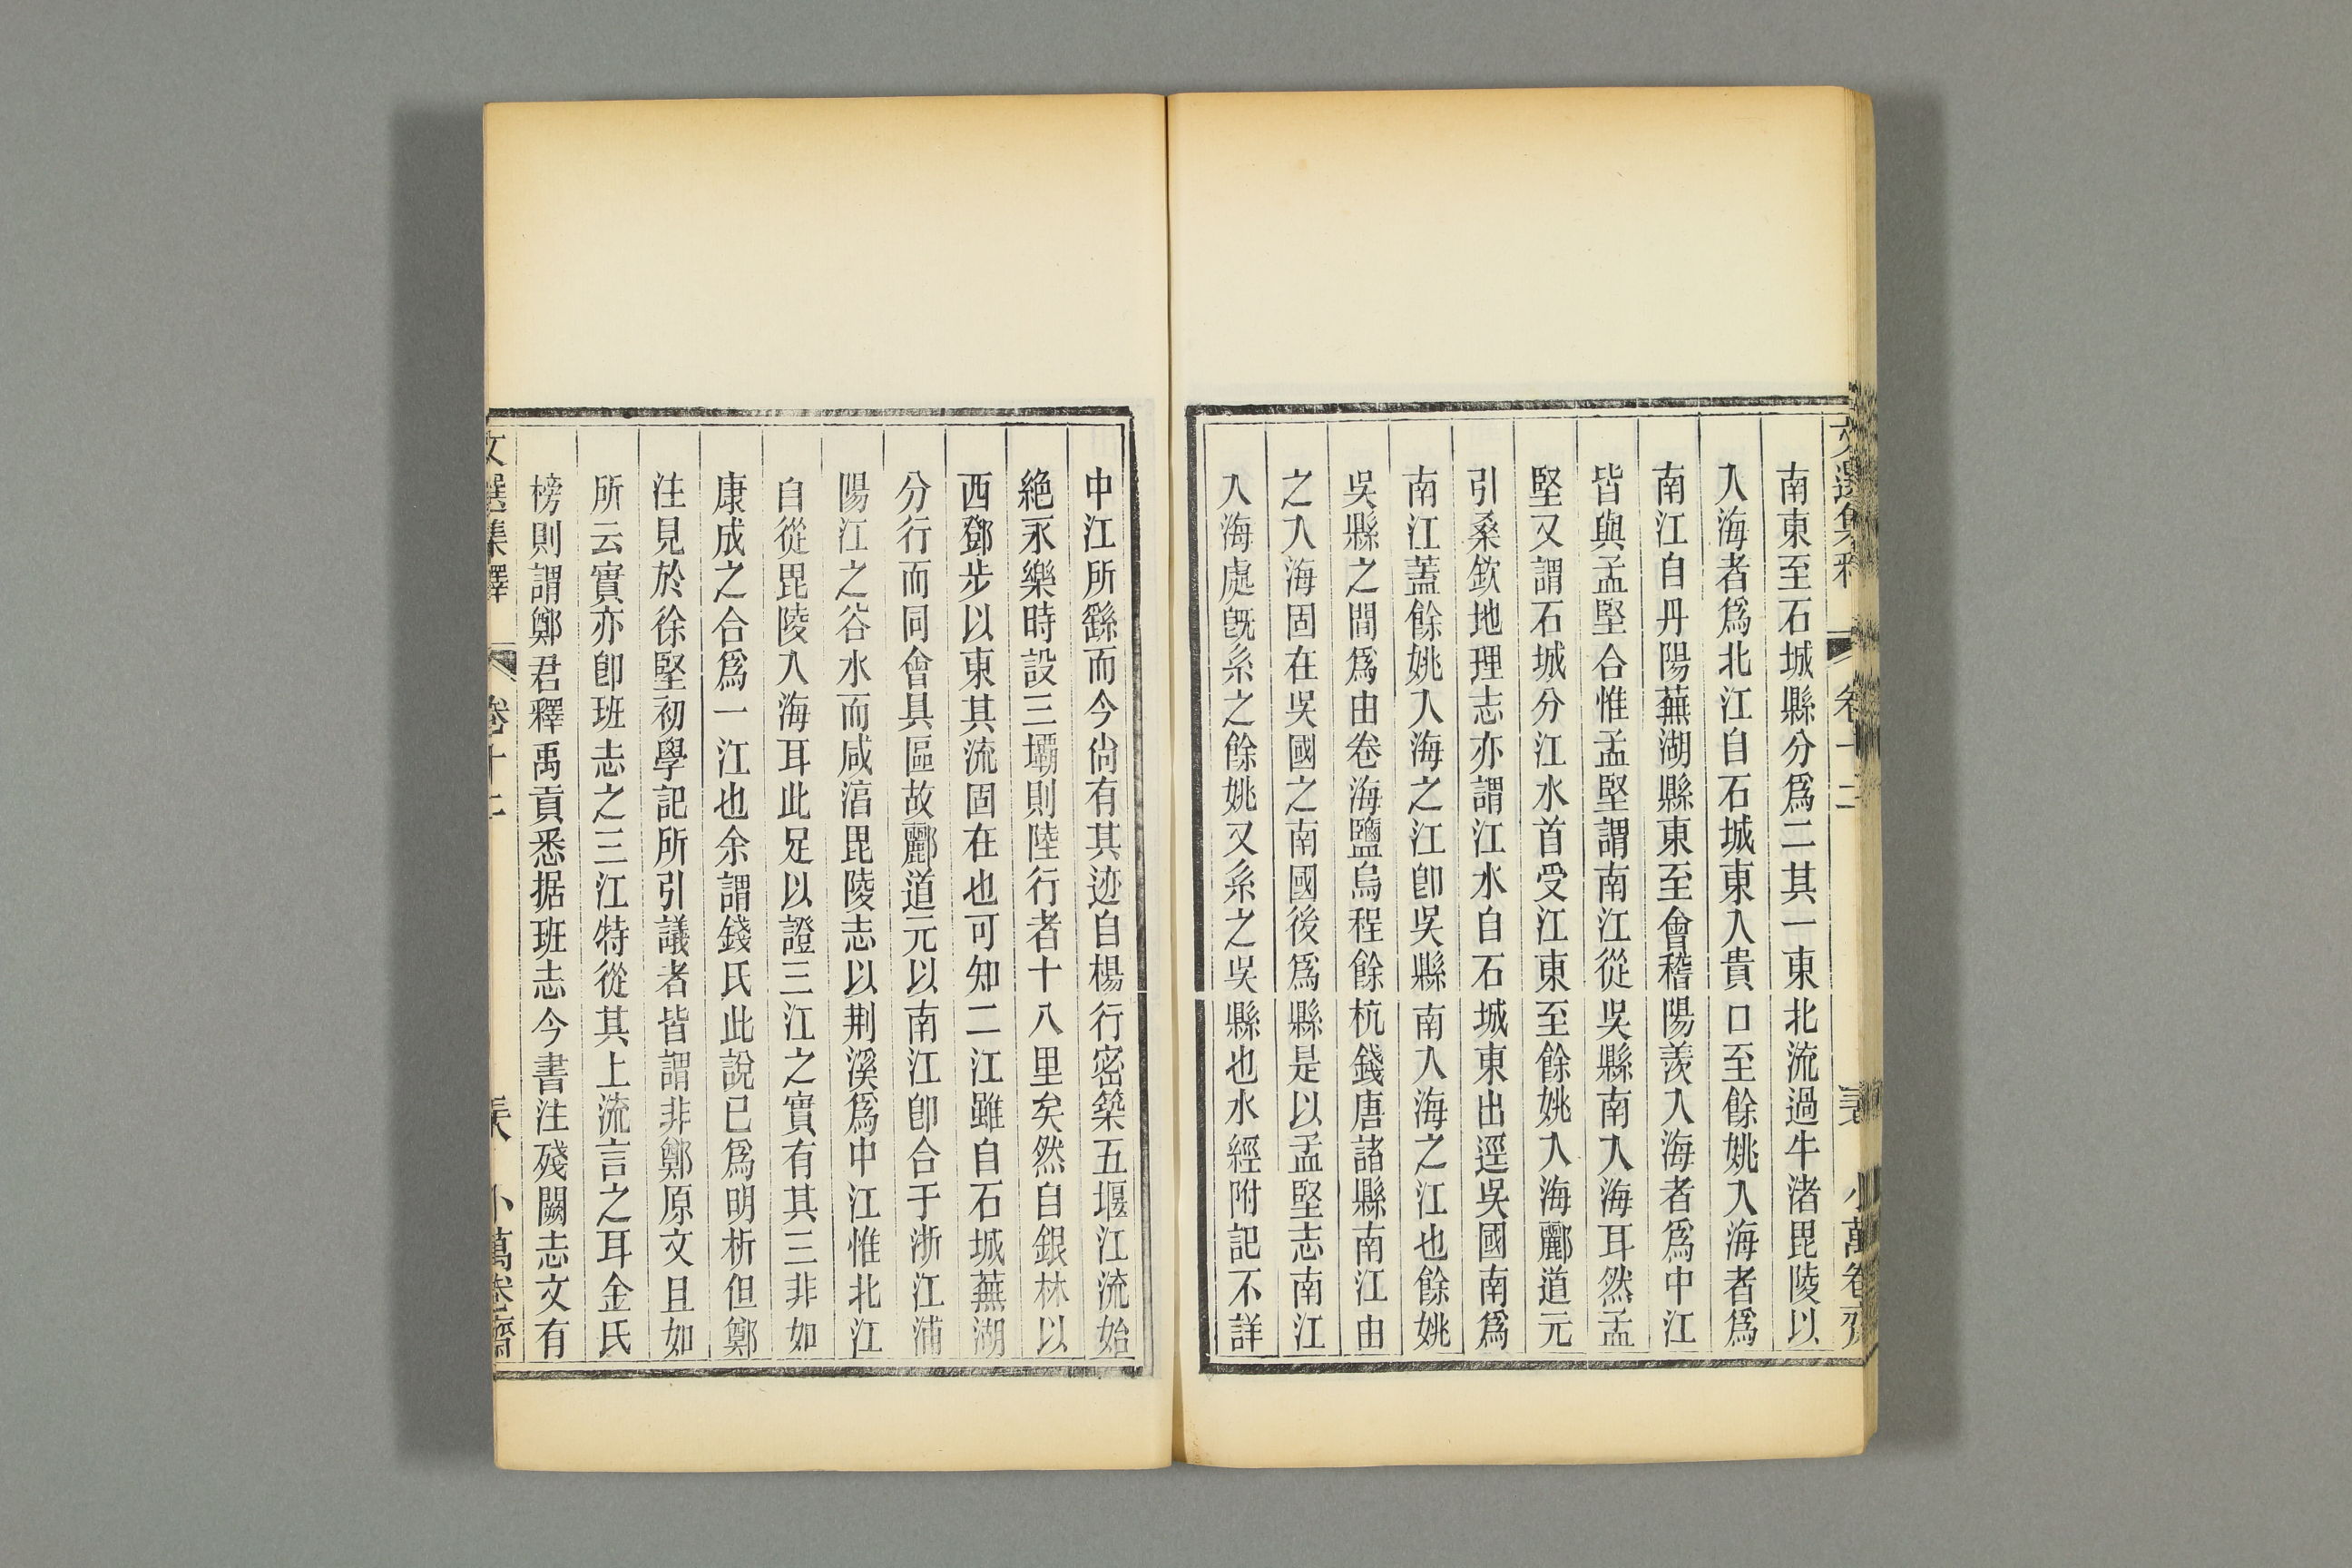 南東至石城縣分爲二其一東北流過牛渚毘陵以
入海者爲北江自石城東入貴口至餘姚入海者爲
南江自丹陽蕪湖縣東至會稽陽羨入海者爲中江
皆與孟堅合惟孟堅謂南江從吳縣南入海耳然孟
堅又謂石城分江水首受江東至餘姚入海酈道元
引桑欽地理志亦謂江水自石城東出逕吳國南爲
南江蓋餘姚入海之江卽吳縣南入海之江也餘姚
吳縣之間爲由卷海鹽烏程餘杭錢唐諸縣南江由
之入海固在吳國之南國後爲縣是以孟堅志南江
入海處旣系之餘姚又系之吳縣也水經附記不詳
中江所繇而今尙有其迹自楊行密築五堰江流始
絕永樂時設三壩則陸行者十八里矣然自銀林以
西鄧步以東其流固在也可知二江雖自石城蕪湖
分行而同會具區故酈道元以南江卽合于浙江浦
陽江之谷水而咸淳毘陵志以荆溪爲中江惟北江
自從毘陵入海耳此足以證三江之實有其三非如
康成之合爲一江也余謂錢氏此說已爲明析但鄭
注見於徐堅初學記所引議者皆謂非鄭原文且如
所云實亦卽班志之三江特從其上流言之耳金氏
榜則謂鄭君釋禹貢悉据班志今書注殘闕志文有
文選集釋 卷十二 小萬卷齋